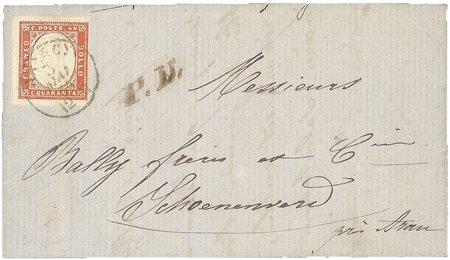 C. POSTE 40
FRANCO
BOLLO
C. QUARANTA
12
P. D.
Messieurs
Bally frères et Cie
Schoenenwerd
près Arau